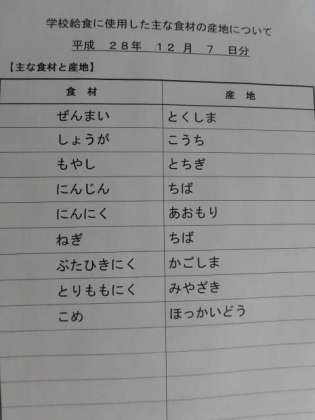 学校給食に使用した主な食材の産地について
平成 28年 12月 7日分
【主な食材と産地】
食材 産地
ぜんまい とくしま
しょうが こうち
もやし とちぎ
にんじん ちば
にんにく あおもり
ねぎ ちば
ぶたひきにく かごしま
とりももにく みやざき
こめ ほっかいどう